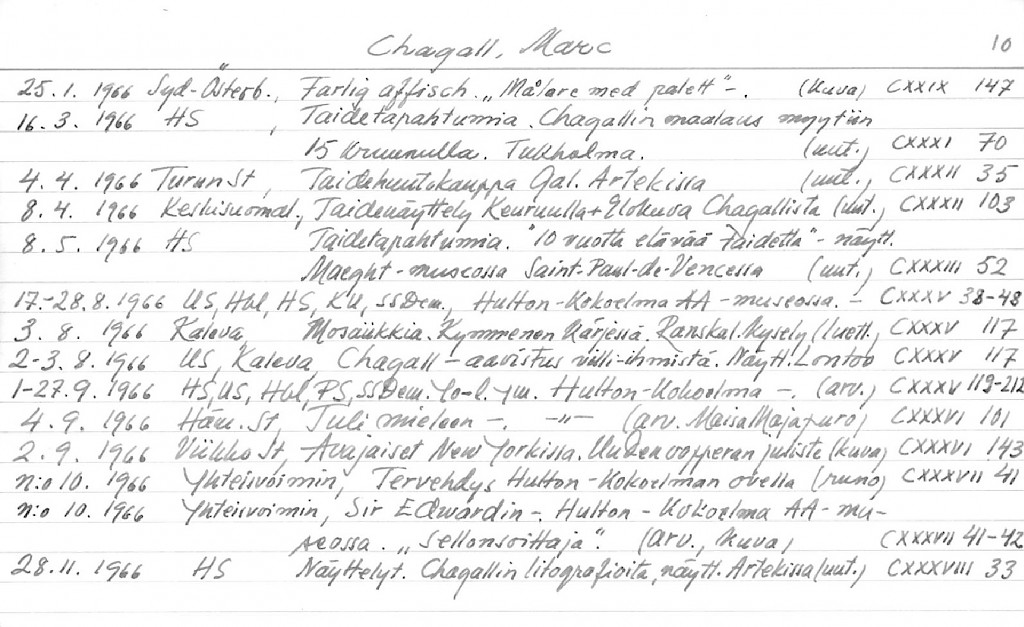 Chagall, Marc 10
25.1. 1966 Syd-Österb., Farlig affisch. „Målare med palett"-. (kuva) CXXIX 147
16.3. 1966 HS , Taidetapahtumia. Chagallin maalaus myytiin
15 kruunulla. Tukholma. (uut.) CXXXI 70
4.4. 1966 Turun St, Taidehuutokauppa Gal. Artekissa (uut., CXXXII 35
8.4. 1966 Keskisuomal., Taidenäyttely Keuruulla + Elokuva Chagallista (uut.) CXXXII 103
8.5. 1966 HS Taidetapahtumia. "10 vuotta elävää taidetta"- näytt.
Maeght-museossa Saint-Paul-de-Vencessa (uut.) CXXXIII 52
17.-28.8.1966 US, Hbl, HS, KU, SSDem., Hulton-Kokoelma AA-museossa. - CXXXV 38-48
3. 8. 1966 Kaleva, Mosaiikkia. Kymmenen kärjessä. Ranskal. kysely (luott., CXXXV 117
2-3.8.1966 US, Kaleva, Chagall - aavistus villi-ihmistä. Näytt. Lontoo CXXXV 117
1-27.9.1966 HS, US, Hbl, PS, SSDem. Yo-l. ym. Hulton-Kokoelma -. (arv.) CXXXV 119-212
4.9. 1966 Häm. St, Tuli mieleen -. -"- (arv. Maisa Majapuro) CXXXVI 101
2.9. 1966 Viikko St, Avajaiset New Yorkissa. Uuden oopperan juliste (kuva) CXXXVI 143
n:o 10. 1966 Yhteisvoimin, Tervehdys Hulton-Kokoelman ovella (runo) CXXXVII 41
n:o 10. 1966 Yhteisvoimin, Sir Edwardin -. Hulton-Kokoelma AA-mu-
seossa. „Sellonsoittaja". (arv., kuva) CXXXVII 41-42
28.11. 1966 HS Näyttelyt. Chagallin litografioita, näytt. Artekissa (uut.) CXXXVIII 33